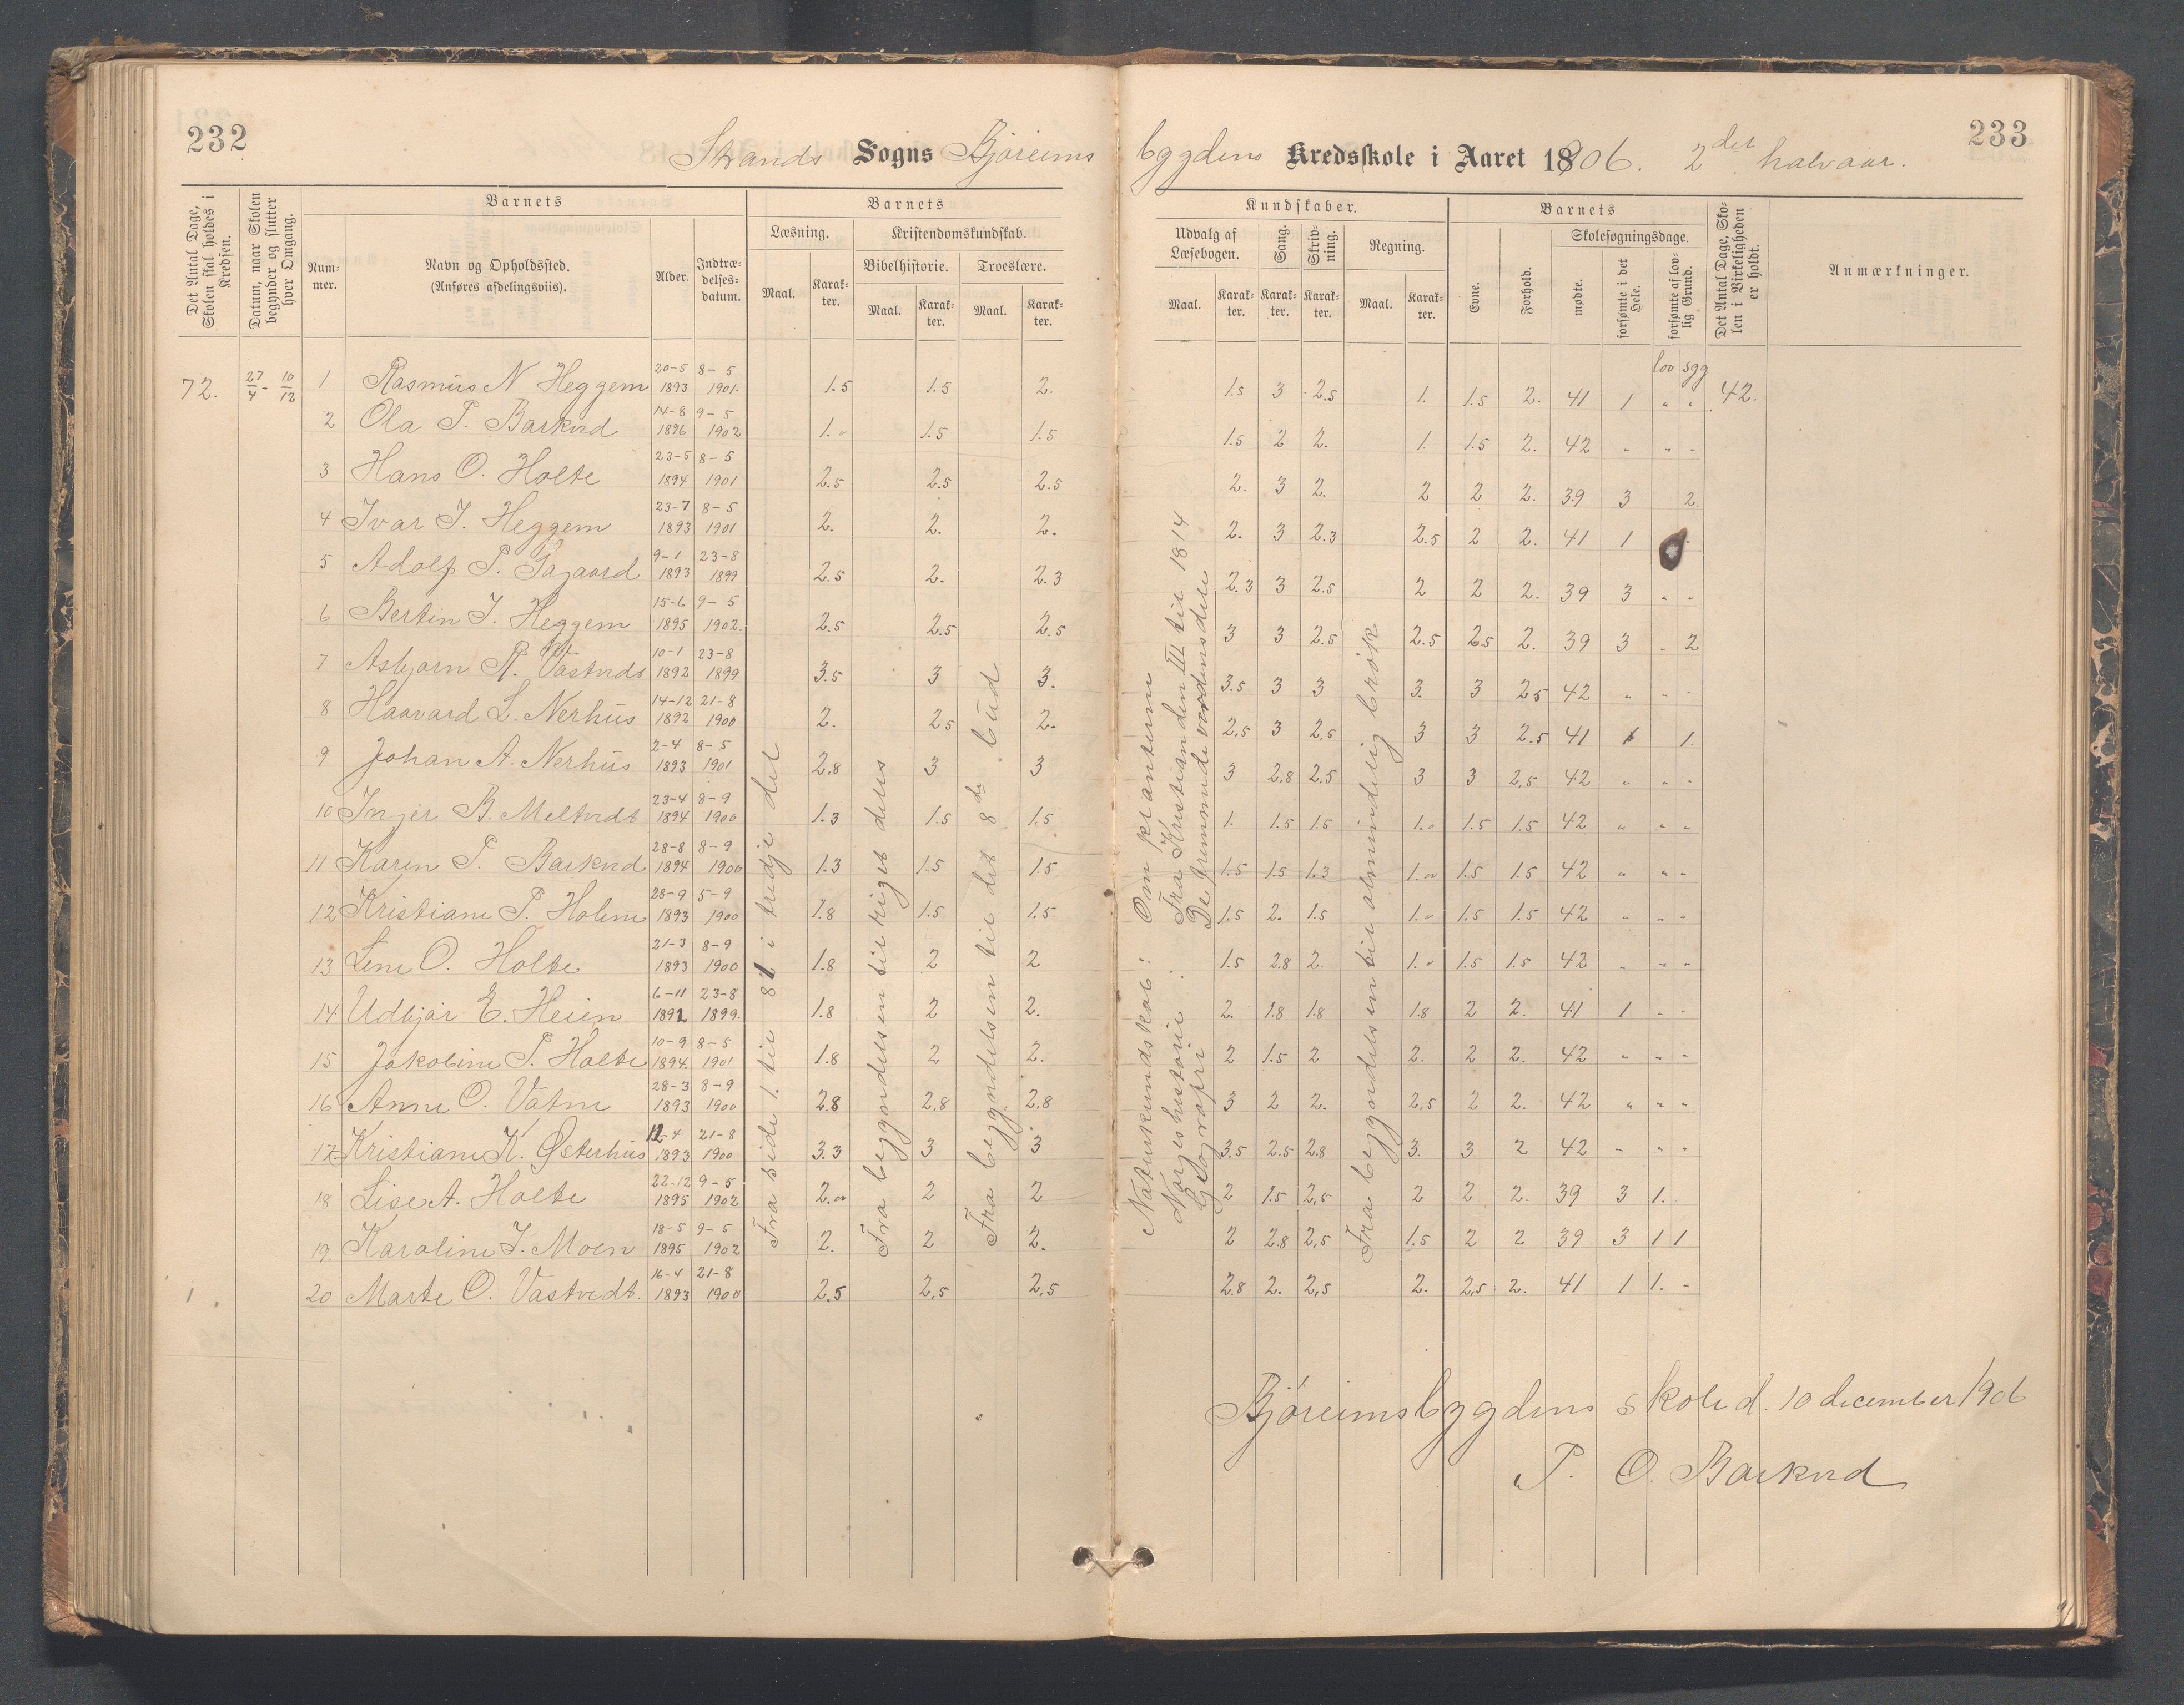 232
Strands Sogns Bjøreims
bygdens Kredsskole i Aaret 1906. 2det halvaar.
233
Det Antal Dage, Skolen skal holdes i Kredsen.
Datum, naar Skolen begynder og slutter hver Omgang.
Barnets
Barnets
Kundskaber.
Barnets
Det Antal Dage, Skolen i Virkeligheden er holdt.
Anmærkninger.
Nummer.
Navn og Opholdssted.
(Anføres afdelingsviis).
Alder.
Indtrædelsesdatum.
Læsning.
Kristendomskundskab.
Bibelhistorie.
Troeslære.
Maal. Karakter. Maal. Karakter. Maal. Karakter.
Udvalg af Læsebogen.
Sang.
Skrivning.
Regning.
Maal. Karakter. Karakter. Karakter. Maal. Karakter.
Evne.
Forhold.
Skolesøgningsdage.
mødte.
forsømte i det Hele.
forsømte af lovlig Grund.
lov syg
72. 27/4 - 10/12 1 Rasmus N Heggem 20-5 1893 8-5 1901. 1.5 1.5 2. 1.5 3 2.5 1. 1.5 2. 41 1 " " 42.
2 Ola P. Barkvd 14-8 1896 9-5 1902 1.- 1.5 1.5 1.5 2 2. 1. 1.5 2. 42 " " "
3 Hans O. Holte 23-5 1894 8-5 1901 2.5 2.5 2.5 2. 3 2. 2 2 2. 39 3 2
4 Ivar I. Heggem 23-7 1893 8-5 1901 2. 2. 2. 2. 3 2.3 2.5 2 2. 41 1 -
5 Adolf P. 9-1 1893 23-8 1899 2.5 2. 2.3 2.3 3 2.5 2 2 2. 39 3 " -
6 Bertin I. Heggem 15-6 1895 9-5 1902. 2.5 2.5 2.5 3 3 2.5 2.5 2.5 2. 39 3 - 2
7 Asbjørn R. Vastvedt 10-1 1892 23-8 1899 3.5 3 3. 3.5 3 3 3. 3 2.5 42 " - -
8 Haavard L. Nerhus 14-12 1892 21-8 1900 2. 2.5 2. 2.5 3 2.5 3 3 2.5 41 1 1.
9 Johan A. Nerhus 2-4 1893 8-5 1901 2.8 3 3 3 2.8 2.5 3 3 2.5 42 " " -
10 Inger B. Meltvedt 23-4 1894 8-9 1900 1.3 1.5 1.5 1. 1.5 1.5 1.- 1.5 1.5 42 " " "
11 Karen P. Barkvd 28-8 1894 8-9 1900 1.3 1.5 1.5 1.5 1.5 1.3 1.- 1.5 1.5 42 " " -
12 Kristiane P. Holme 28-9 1893 5-9 1900 1.8 1.5 1.5 1.5 2. 1.5 1.- 1.5 1.5 42 " - -
13 Lene O. Holte 21-3 1893 8-9 1900 1.8 2 2 1.5 2.8 2. 1.- 1.5 1.5 42 " " -
14 Udbjør E. Heien 6-11 1892 23-8 1899. 1.8 2 2. 2. 1.8 1.8 1.8 2 2. 41 1 - -
15 Jakobine P. Holte 10-9 1894. 8-5 1901 1.8 2 2. 2 1.5 2 2. 2 2. 42 " " -
16 Anne O. Vatne 28-3 1893 8-9 1900 2.8 2.8 2.8 3 2 2. 2.5 2 2. 42 " " "
17. Kristiane K. Østerhus 12-4 1893 21-8 1900 3.3 3 3 3.5 2.5 2.8 3. 3 2 42 " " "
18 Lise A. Holte 22-12 1895 9-5 1902 2.- 2 2 2 1.5 2.5 2 2 2. 39 3 1.
19. Karoline I. Moen 18-5 1895 9-5 1902 2. 2 2. 2 2.8 2.5 1.5 2 2 39 3 1 1
20 Marte O. Vastvedt. 16-4 1893 21-8 1900 2.5 2.5 2.5 2.8 2. 2.5 2. 2.5 2. 41 1 1. -
Fra side 1. til 81 i tredje del
Fra begyndelsen til riget deles
Fra begyndelsen til det 8de bud
Naturkundskab: Om planterne
Norgeshistorie: Fra Kristian den III til 1814
Geografi De fremmede verdensdele
Fra begyndelsen til almindelig brøk
Bjøreimsbygdens skole d. 10 december 1906
P. O. Barkvd